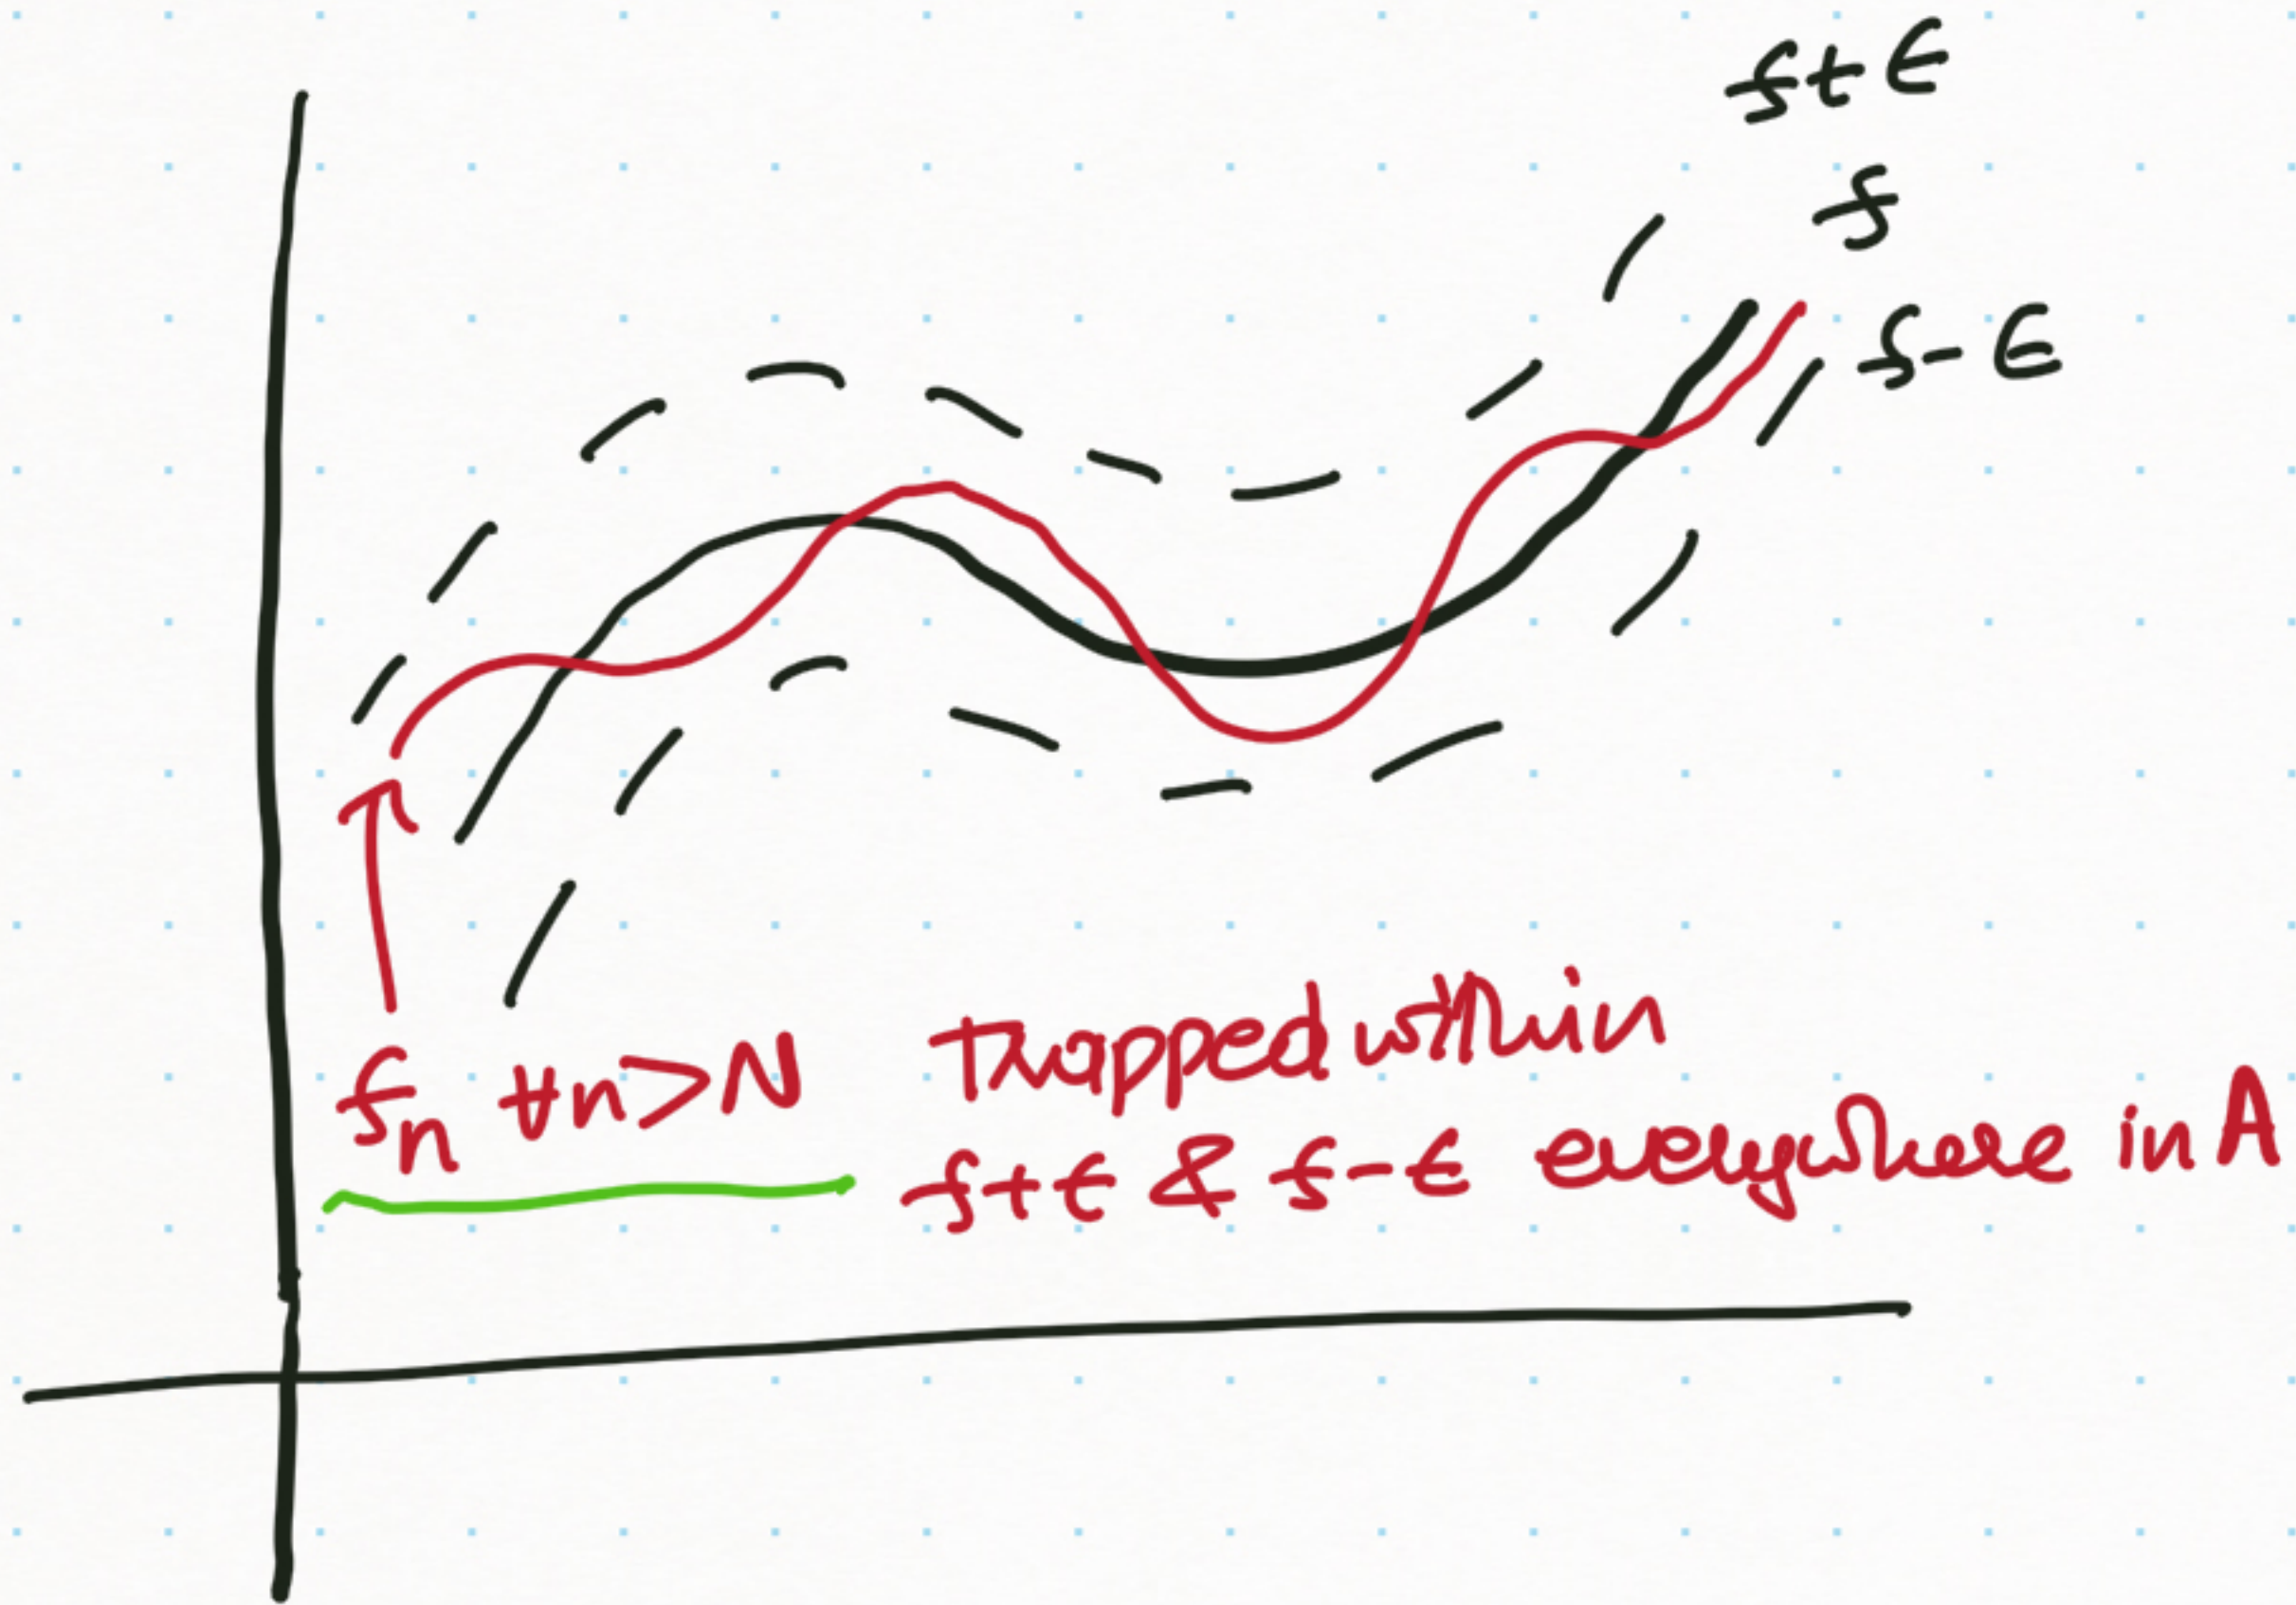 f+ϵ
f
f-ϵ
fn ∀n>N
trapped within
f+ϵ & f-ϵ everywhere in A